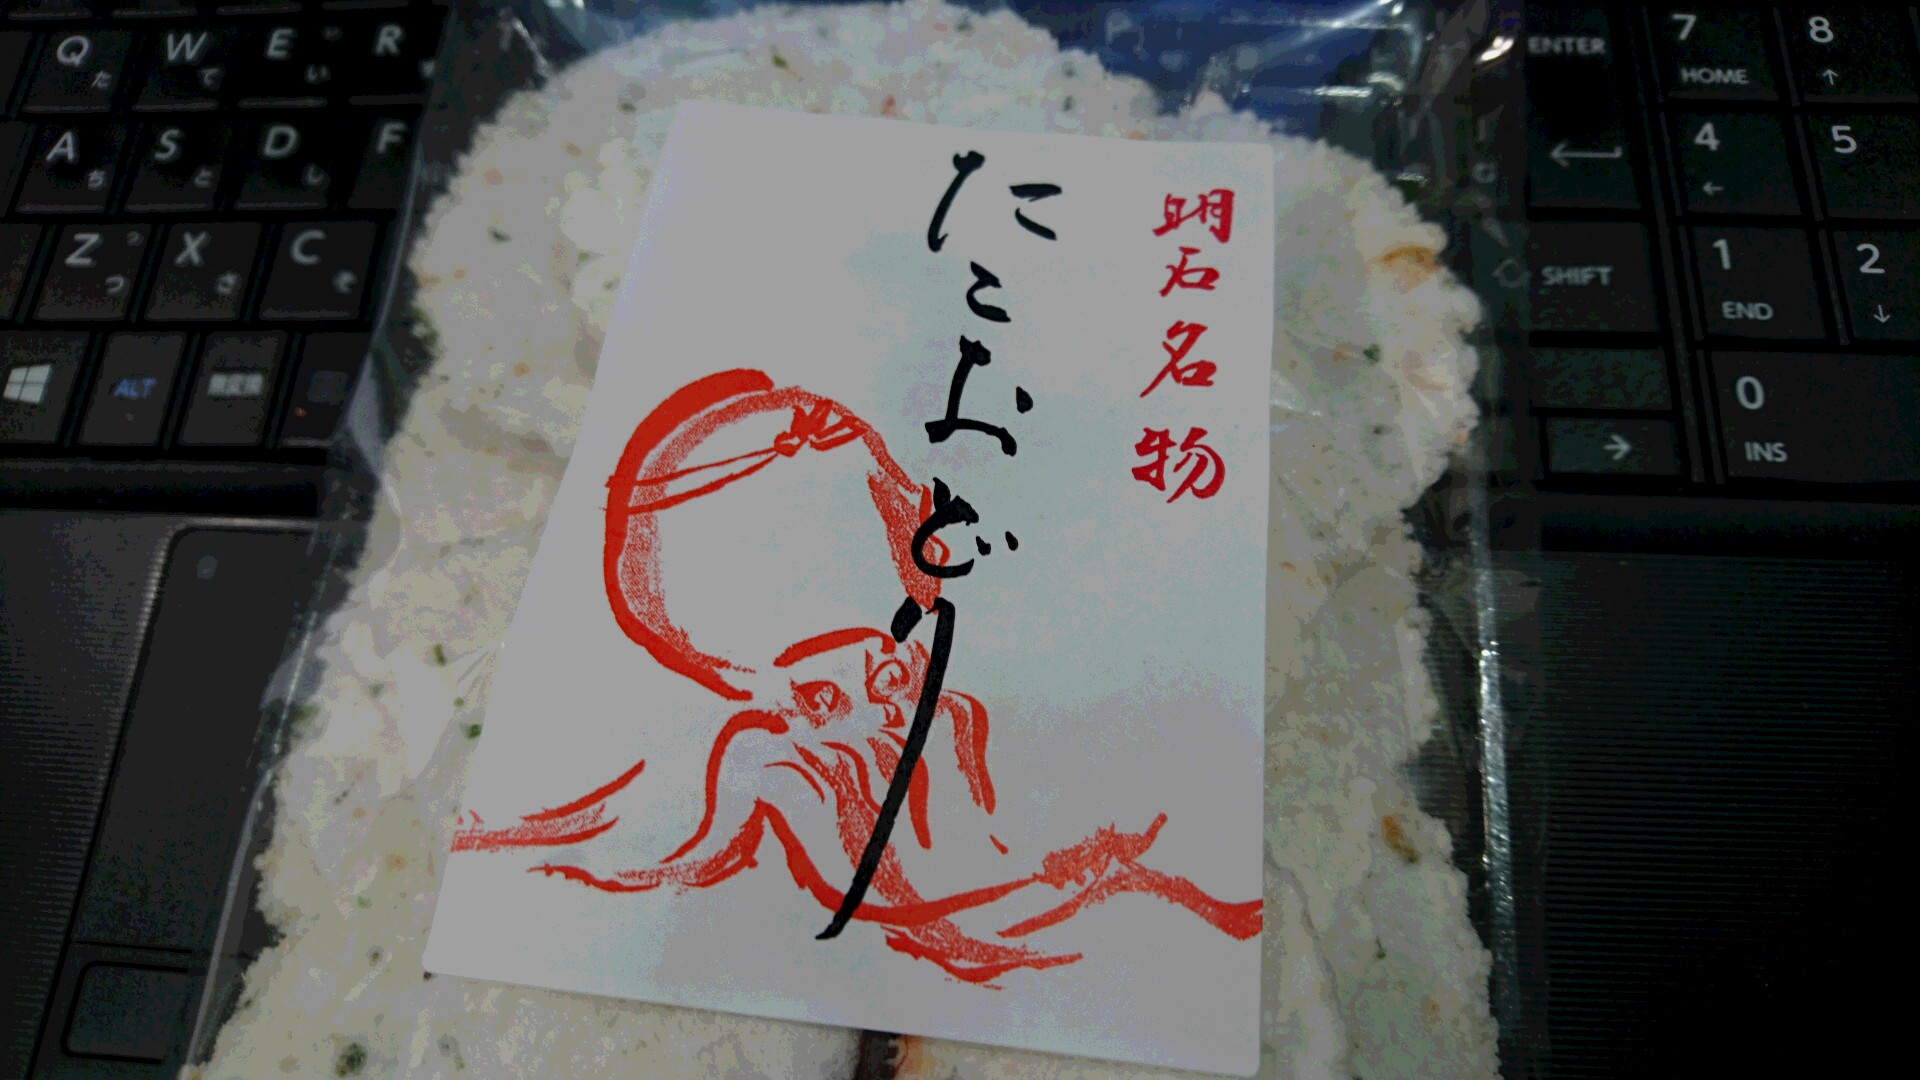 明石名物
たこおどり
Q た
W て
E い
R
A ち
S と
D し
F
Z つ っ
X さ
C そ
ALT
無変換
ENTER
SHIFT
7 HOME
8
4
5
1 END
2
0 INS